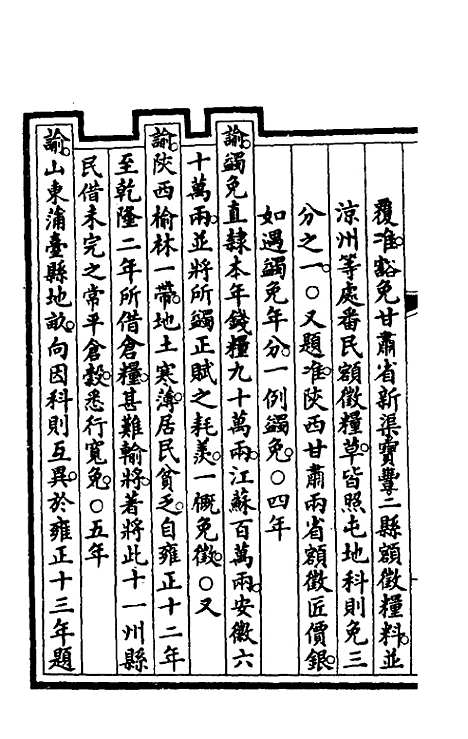 覆准豁免甘肅省新渠寶豐二縣額徵糧料並
涼州等處番民額徵糧草皆照屯地科則免三
分之一〇又題准陝西甘肅兩省額徵匠價銀
如遇蠲免年分一例蠲免〇四年
諭蠲免直隸本年錢糧九十萬兩江蘇百萬兩安徽六
十萬兩並將所蠲正賦之耗羡一槪免徵〇又
諭陝西榆林一帶地土寒薄居民貧乏自雍正十二年
至乾隆二年所借倉糧甚難輸將著將此十一州縣
民借未完之常平倉穀悉行寬免〇五年
諭山東蒲臺縣地畝向因科則互異於雍正十三年題